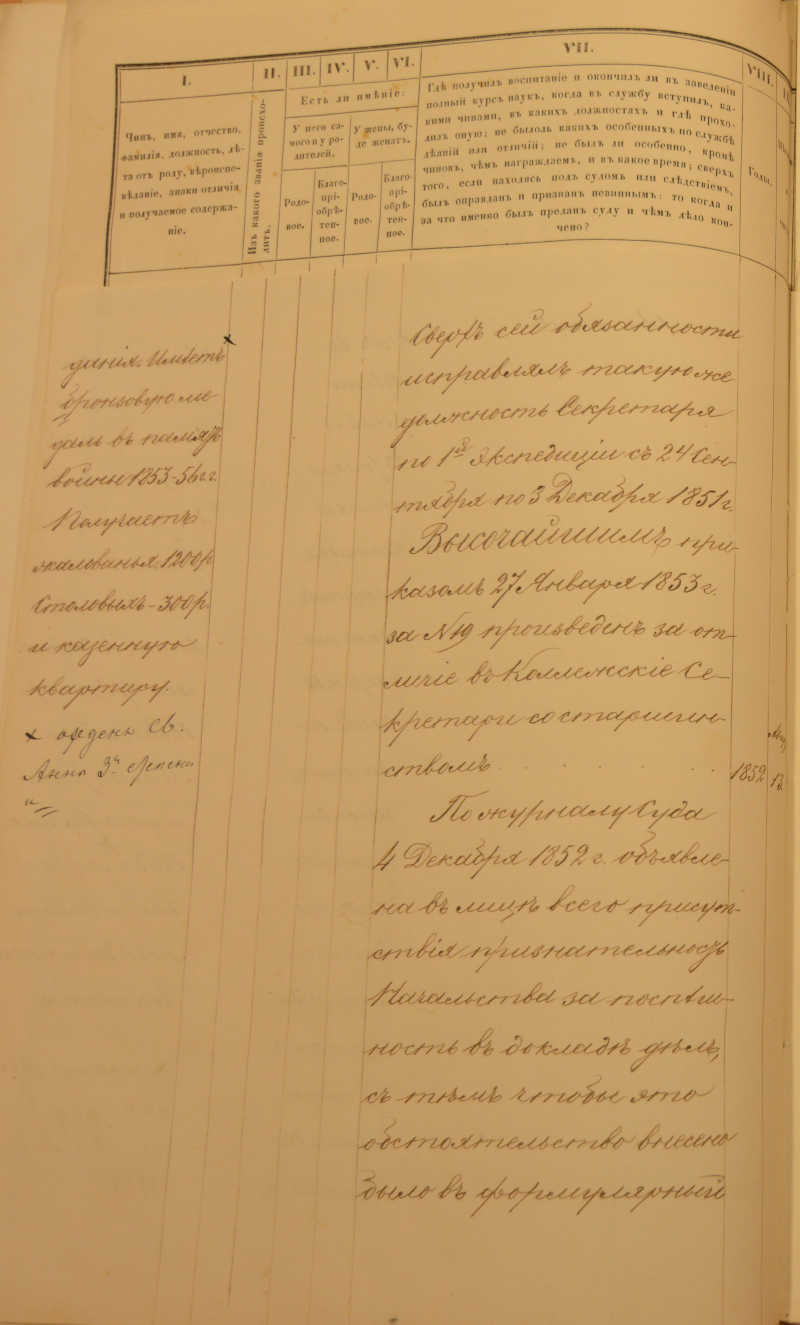 I.
Чинъ, имя, отчество,
фамилія, должность, лѣ-
та отъ роду, вѣроиспо-
вѣданіе, знаки отличія
и получаемое содержа-
ніе.
II.
Изъ какого званія происхо-
дитъ.
III. IV. V. VI.
Есть ли имѣніе:
У него са-
мого и у ро-
дителей.
У жены, бу-
де женатъ.
Родо-
вое.
Благо-
прі-
обрѣ-
тен-
ное.
Родо-
вое.
Благо-
прі-
обрѣ-
тен-
ное.
VII.
Гдѣ получилъ воспитаніе и окончилъ ли въ заведеніи
полный курсъ наукъ, когда въ службу вступилъ, ка-
кими чинами, въ какихъ должностяхъ и гдѣ прохо-
дилъ оную; не былоль какихъ особенныхъ по службѣ
дѣяній или отличій; не былъ ли особенно, кромѣ
чиновъ, чѣмъ награждаемъ, и въ какое время; сверхъ
того, если находясь подъ судомъ или слѣдствіемъ,
былъ оправданъ и признанъ невиннымъ: то когда и
за что именно былъ преданъ суду и чѣмъ дѣло кон-
чено?
VIII.
Годы.
Имѣетъ
бронзовую ме-
даль въ память
войны 1853-56 гг.
Получаетъ
жалованья 1200 р
Столовыхъ - 300 р.
и казенную
квартиру.
x орденъ Св.
Анны 3й степени
Сверхъ сей обязанности
исправлялъ такую же
должность Секретаря
по 1й Экспедиціи съ 24 Сен-
тября по 3 Декабря 1851 г.
Высочайшимъ при-
казомъ 27 Января 1853 г.
за № 19 произведенъ за от-
личіе въ Коллежскіе Се-
кретари со старшин-
ствомъ . . . . . . 1852
По журналу Суда
4 Декабря 1852 г. объявле-
на въ лицѣ всего присут-
ствія признательность
Начальства за поспѣш-
ность въ докладѣ дѣлъ,
съ тѣмъ чтобы это
обстоятельство внесено
было въ формулярный